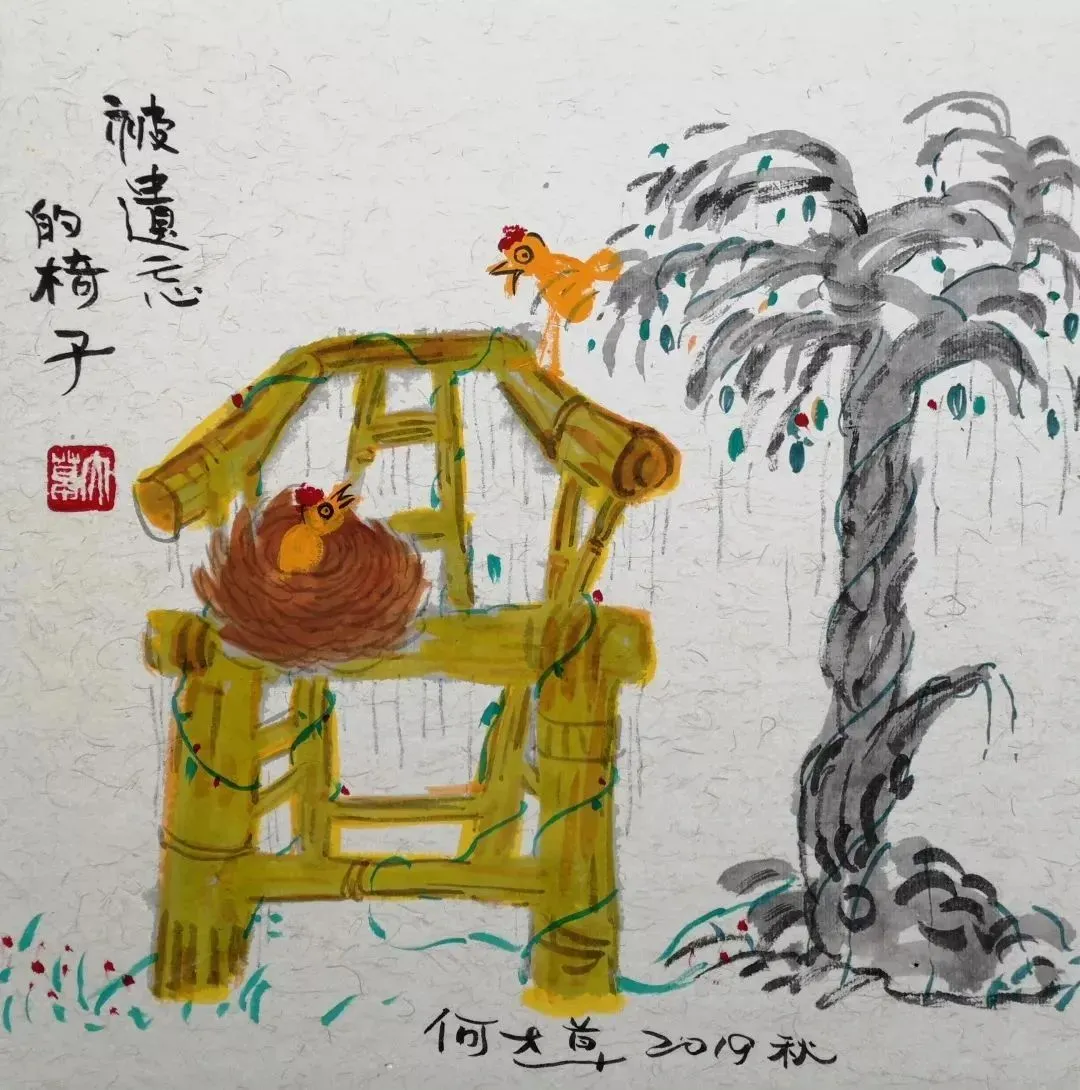 被遗忘
的椅子
大草
何大草 2019 秋